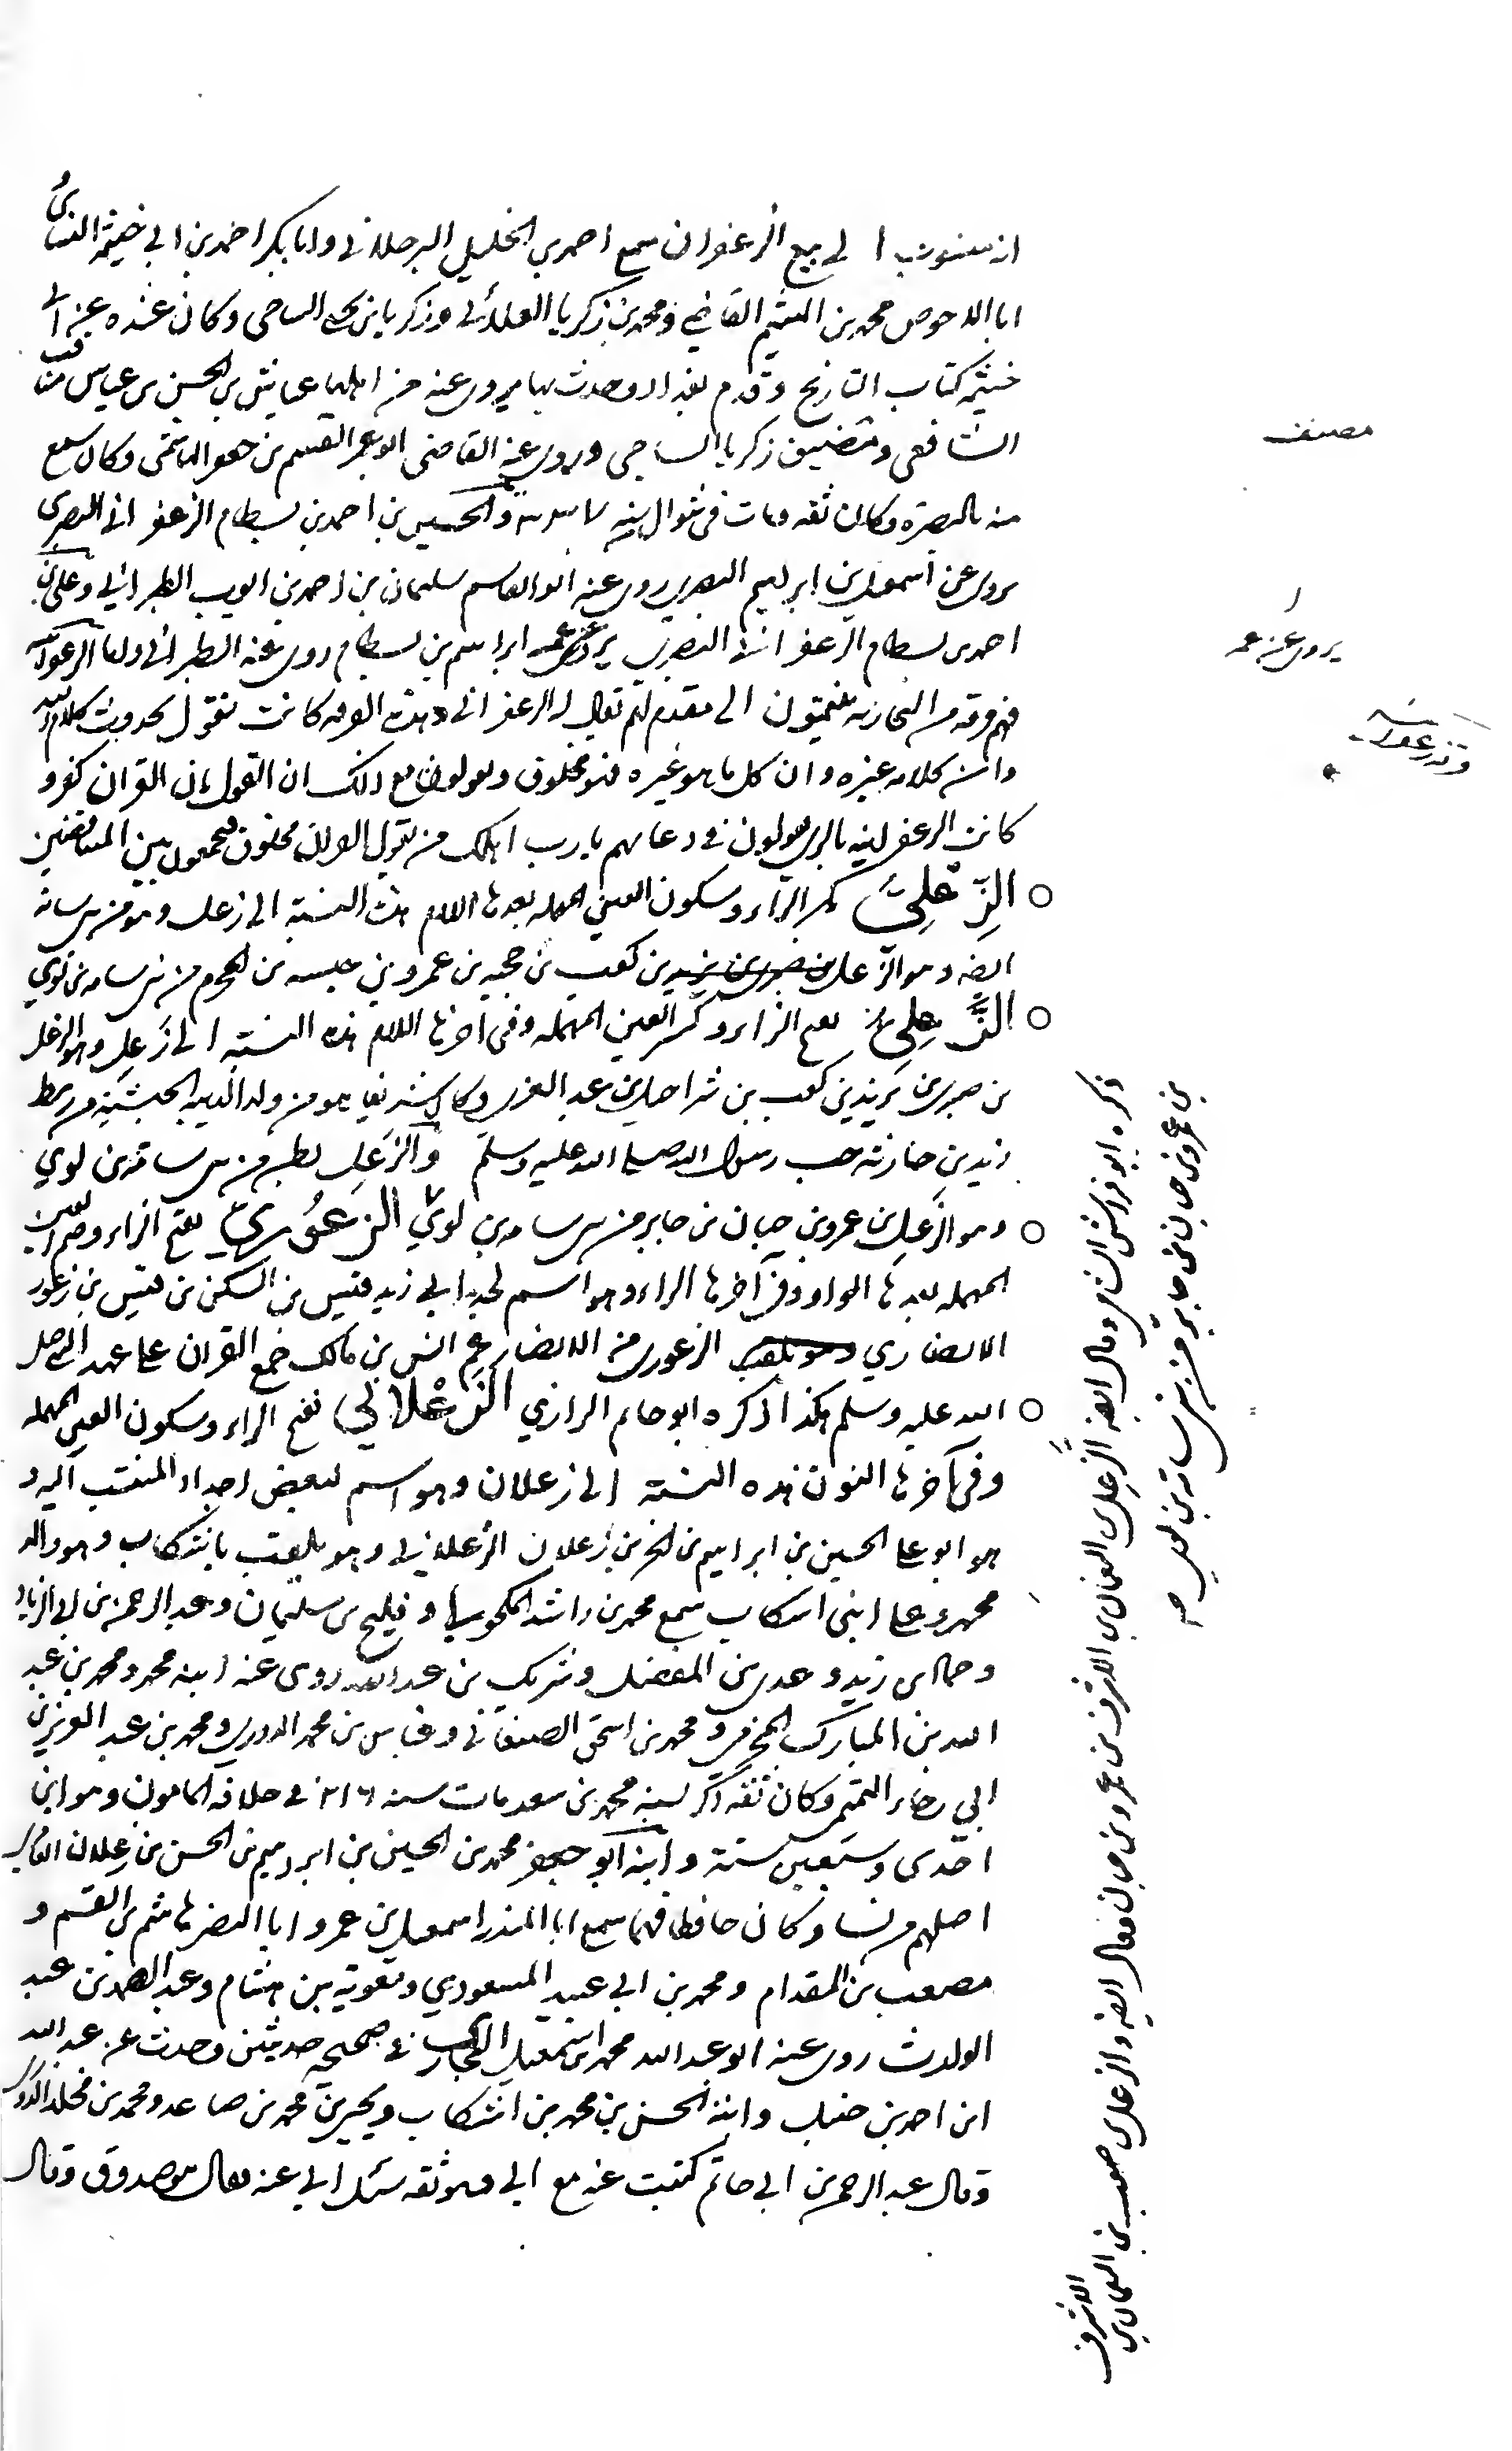 انه منسوب الى بيع الزعفران سمع احمد بن الخليل البرجلاني وابا بكر احمد بن ابي خيثمة النسائي و
ابا الاحوص محمد بن الهيثم القاضي ومحمد بن زكريا الغلابي وزكريا بن يحيى الساجي وكان عنده عن ابي
خيثمة كتاب التاريخ وقدم بغداد وحدث بها يروى عنه من اهلها عياش بن الحسن بن عياش مناقب
الشافعي وتصنيف زكريا الساجي وروى عنه القاضي ابو عمر القسم بن جعفر الهاشمي وكان سمع
منه بالبصرة وكان ثقه ومات في شوال سنه والحسين بن احمد بن بسطام الزعفراني البصري
يروى عن اسمعيل بن ابرهيم البصري روى عنه ابو القاسم سليمان بن احمد بن ايوب الطبراني وعلي بن
احمد بن بسطام الزعفراني البصري يروى عن عمه ابراهيم بن بسطام روى عنه الطبراني واما الزعفرانيه
فهم فرقه من النجاريه ينتمون الى مقدم لهم يقال له الزعفراني وهذه الفرقه كانت تقول بحدوث كلام الله
وان كلامه غيره وان كل ما هو غيره فهو مخلوق ويقولون مع ذلك ان القول بان القران كفر و
كانت الزعفرانيه بالري يقولون في دعائهم يا رب اهلك من يقول القران مخلوق فيجمعون بين المتناقضين
الزِّعْلِيّ بكسر الزاء وسكون العين المهمله بعدها اللام هذه النسبة الى زعل وهو من بني سامه
ايضا وهو الزعل بن صبرى بن يزيد بن كعب بن حجيه بن عمرو بن عبسه بن المجرم من بني سامه بن لوي
الزَّعِلِيّ بفتح الزاء وكسر العين المهمله وفي اخرها اللام هذه النسبه الى زَعِل وهو الزعل
بن صبرى بن يزيد بن كعب بن شراحيل بن عبد العزى وكان هو من ولد من رهط
زيد بن حارثه حب رسول الله صلى الله عليه وسلم والزَعِل بطن من بني سامة بن لوي
وهو الزعل بن عمرو بن حيان بن جابر من بني سامه بن لوي الزعُوريّ بفتح الزاء وضم العين
المهمله بعدها الواو وفي آخرها الراء وهو اسم لجد ابي زيد قيس بن السكن بن قيس بن زعور
الانصاري الزعوري من الانصار عم انس بن مالك جمع القران على عهد النبي صلى
الله عليه وسلم هكذا ذكره ابو حاتم الرازي الزَعْلاني بفتح الزاء وسكون العين المهمله
وفي آخرها النون هذه النسبة الى زعلان وهو اسم لبعض اجداد المنتسب اليه و
هو ابو على الحسين بن ابراهيم بن الحر بن زعلان الزعلاني وهو يلقب باشكاب وهو والد
محمد وعلى ابني اشكاب سمع محمد بن راشد المكحولي وفليح بن سليمان وعبد الرحمن بن ابي الزناد
وحماد بن زيد وعدي بن الفضل وشريك بن عبد الله روى عنه ابنه محمد ومحمد بن عبد
الله بن المبارك المخرمي ومحمد بن اسحق الصغاني وعباس بن محمد الدوري ومحمد بن عبد العزيز بن
ابي رجاء التميمي وكان ثقه ذكر محمد بن سعد مات سنه ٢١٦ في خلافة المامون وهو ابن
احدى وسبعين سنة وابنه ابو جعفر محمد بن الحسين بن ابراهيم بن الحسن بن زعلان العامري
اصلهم من نسا وكان حافظا فهما سمع ابا المنذر اسمعيل بن عمر وابا النضر هاشم بن القسم و
مصعب بن المقدام ومحمد بن ابي عبيد المسعودي ومعوية بن هشام وعبد الصمد بن عبد
الوارث روى عنه ابو عبد الله محمد بن اسمعيل البخاري في صحيحه حديثين وحدث عن عبد الله
ابن احمد بن حنبل وابنه الحسن بن محمد بن اشكاب ويحيى بن محمد بن صاعد ومحمد بن مخلد الدوري
وقال عبد الرحمن بن ابي حاتم كتبت عنه مع ابي وهو ثقه سئل ابي عنه فقال هو صدوق وقال
مصنف
يروى عن عمه
ذكره ابو فراس السامي وقال ايضا الزعل بن النعمان بن الاشرف بن عمرو بن حيان وقال ايضا والزعل بن صعب بن النعمان بن الاشرف
بن عمرو بن حيان بن جابر من بني سامة بن لوي صح